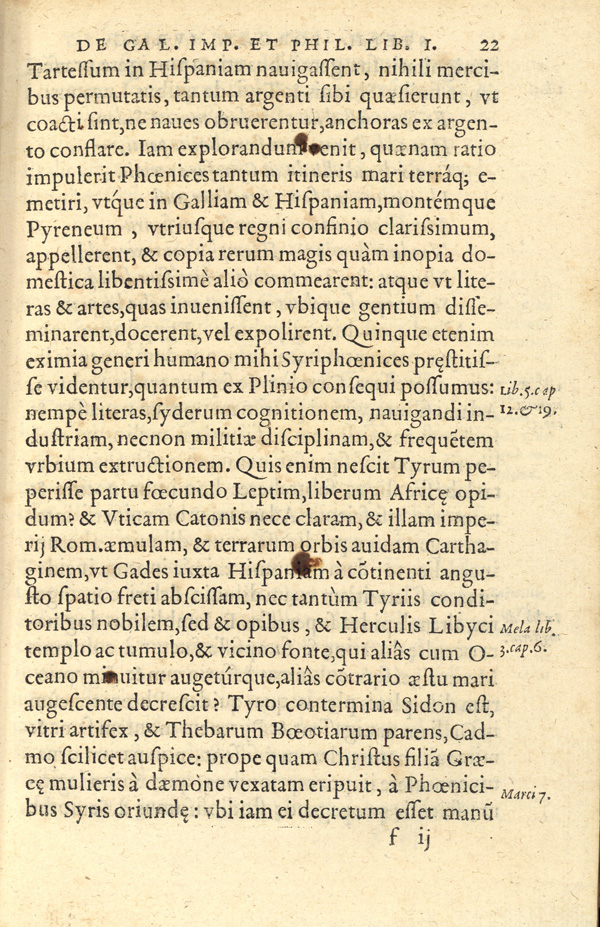 DE GAL. IMP. ET PHIL. LIB. I. 22
Tarteſſum in Hiſpaniam nauigaſſent, nihili merci-
bus permutatis, tantum argenti ſibi quæſierunt, vt
coacti ſint, ne naues obruerentur, anchoras ex argen-
to conflare. Iam explorandum venit, quænam ratio
impulerit Phœnices tantum itineris mari terráq; e-
metiri, vtque in Galliam & Hiſpaniam, montémque
Pyreneum, vtriuſque regni confinio clariſsimum,
appellerent, & copia rerum magis quàm inopia do-
meſtica libentiſsimè aliò commearent: atque vt lite-
ras & artes, quas inueniſſent, vbique gentium diſſe-
minarent, docerent, vel expolirent. Quinque etenim
eximia generi humano mihi Syriphœnices pręſtitiſ-
ſe videntur, quantum ex Plinio conſequi poſſumus: Lib. 5. cap
nempè literas, ſyderum cognitionem, nauigandi in- 12. & 19.
duſtriam, necnon militiæ diſciplinam, & frequētem
vrbium extructionem. Quis enim neſcit Tyrum pe-
periſſe partu fœcundo Leptim, liberum Africę opi-
dum? & Vticam Catonis nece claram, & illam impe-
rij Rom. æmulam, & terrarum orbis auidam Cartha-
ginem, vt Gades iuxta Hiſpaniam à cōtinenti angu-
ſto ſpatio freti abſciſſam, nec tantùm Tyriis condi-
toribus nobilem, ſed & opibus, & Herculis Libyci Mela lib.
templo ac tumulo, & vicino fonte, qui aliâs cum O- 3. cap. 6.
ceano minuitur augetúrque, aliâs cōtrario æſtu mari
augeſcente decreſcit? Tyro contermina Sidon eſt,
vitri artifex, & Thebarum Bœotiarum parens, Cad-
mo ſcilicet auſpice: prope quam Chriſtus filiā Græ-
cę mulieris à dæmone vexatam eripuit, à Phœnici- Marci 7.
bus Syris oriundę: vbi iam ei decretum eſſet manū
f ij